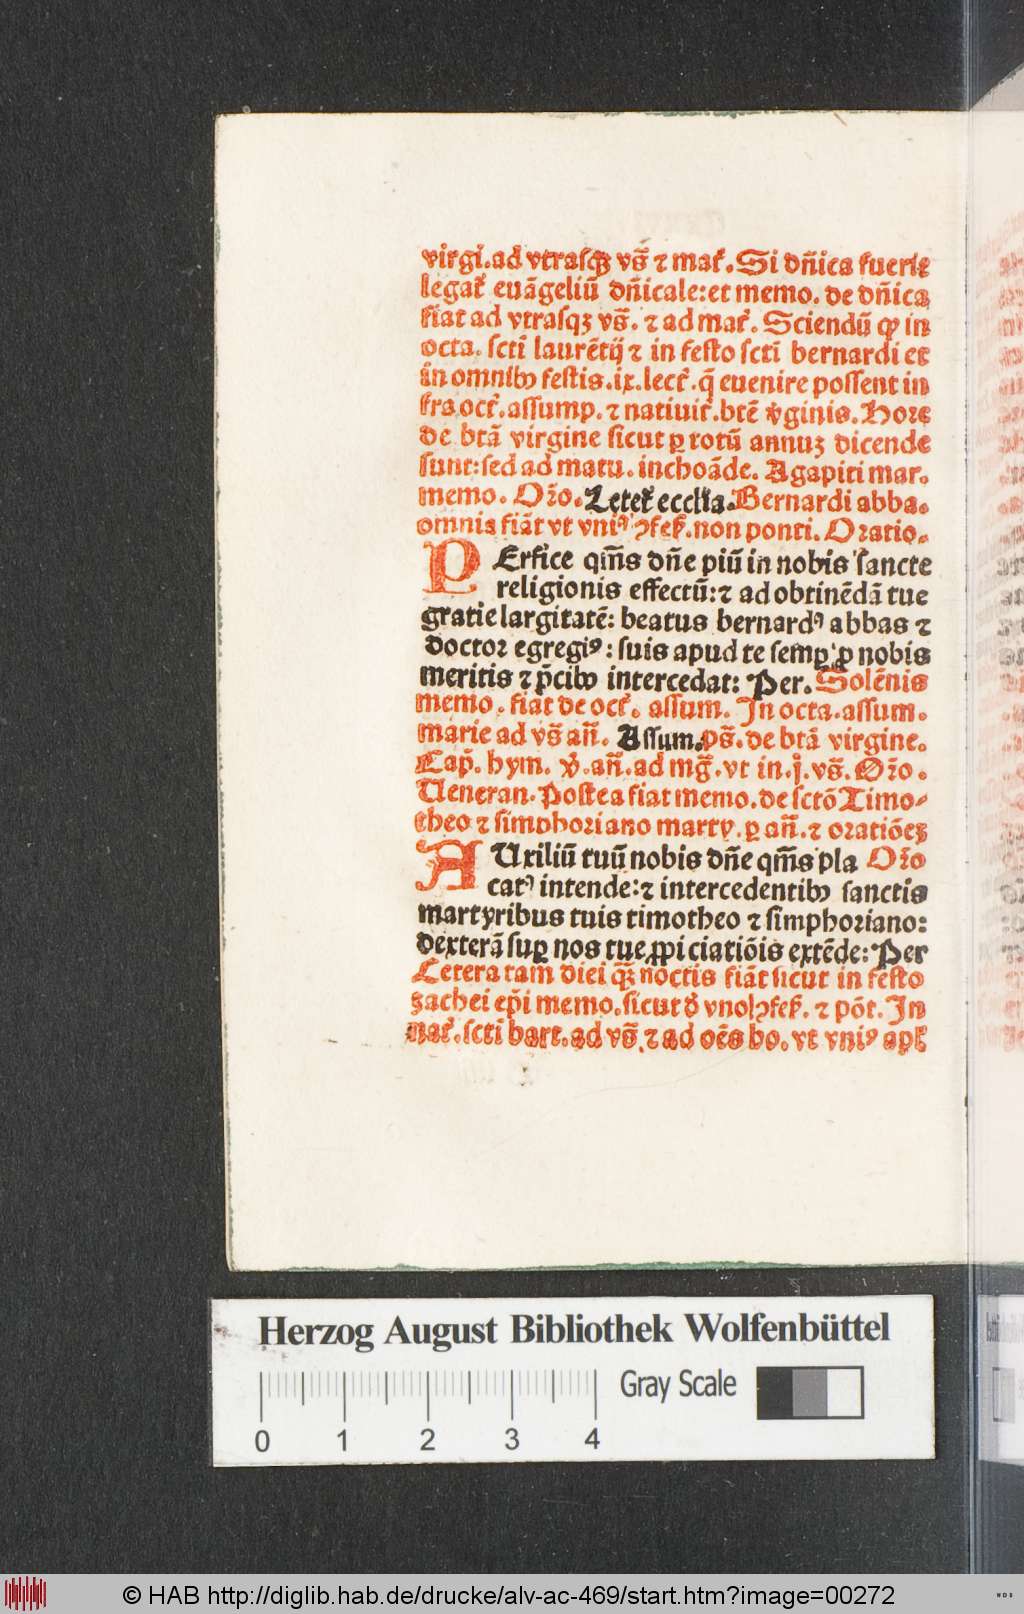 virgi. ad vtrasqꝫ vs̄ ⁊ mat̉. Si dn̄ica fuerit
legat̉ euāgeliū dn̄icale: et memo. de dn̄ica
fiat ad vtrasqꝫ vs̄. ⁊ ad mat̉. Sciendū ꝙ in
octa. scti̅ laurētij ⁊ in festo scti̅ bernardi et
in omnibꝰ festis. ix. lect̉. q̄ euenire possent in
fra oct̉. assump. ⁊ natiuit̉. btē v̉ginis. Hore
de btā virgine sicut ꝑ totū annuꝫ dicende
sunt: sed ad matu. inchoāde. Agapiti mar.
memo. Or̄o. Letet̉ eccl̄ia. Bernardi abba.
omnis fiāt vt vniꝰ ꝯfeſ̉. non ponti. Oratio.
PErfice qm̄s dn̄e piū in nobis sancte
religionis effectū: ⁊ ad obtinēdā tue
gratie largitatē: beatus bernardꝰ abbas ⁊
doctor egregiꝰ: suis apud te semꝑ ꝓ nobis
meritis ⁊ p̄cibꝰ intercedat: Per. Solēnis
memo. fiat de oct̉. assum. In octa. assum.
marie ad vs̄ an̄. Assum. ps̄. de btā virgine.
Cap̄. hym. v̉. an̄. ad mḡ. vt in. j. vs̄. Or̄o.
Ueneran. Postea fiat memo. de sctō Timo⸗
theo ⁊ simphoriano marty. ꝑ an̄. ⁊ oratiōeꝫ
AUxiliū tuū nobis dn̄e qm̄s pla Or̄o
catꝰ intende: ⁊ intercedentibꝰ sanctis
martyribus tuis timotheo ⁊ simphoriano:
dexterā suꝑ nos tue ꝓpiciatiōis extēde: Per
Cetera tam diei qꝫ̄ noctis fiāt sicut in festo
zachei ep̄i memo. sicut d̉ vno ꝯfeſ̉. ⁊ pōt. In
nat̉. scti bart. ad vs̄. ⁊ ad oēs ho. vt vniꝰ apl̉
Herzog August Bibliothek Wolfenbüttel
Gray Scale
0 1 2 3 4
© HAB http://diglib.hab.de/drucke/alv-ac-469/start.htm?image=00272